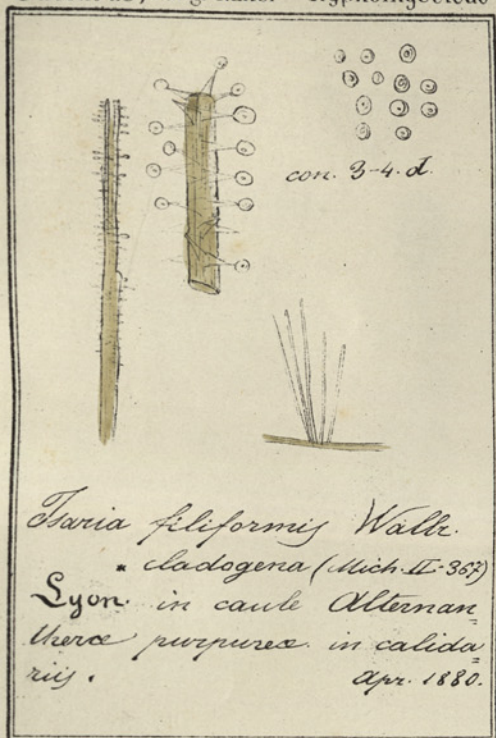 con. 3-4. d.
Isaria filiformis Wallr.
" cladogena (Mich. II-367)
Lyon. in caule Alternan=
theræ purpureæ in calida=
riis. Apr. 1880.